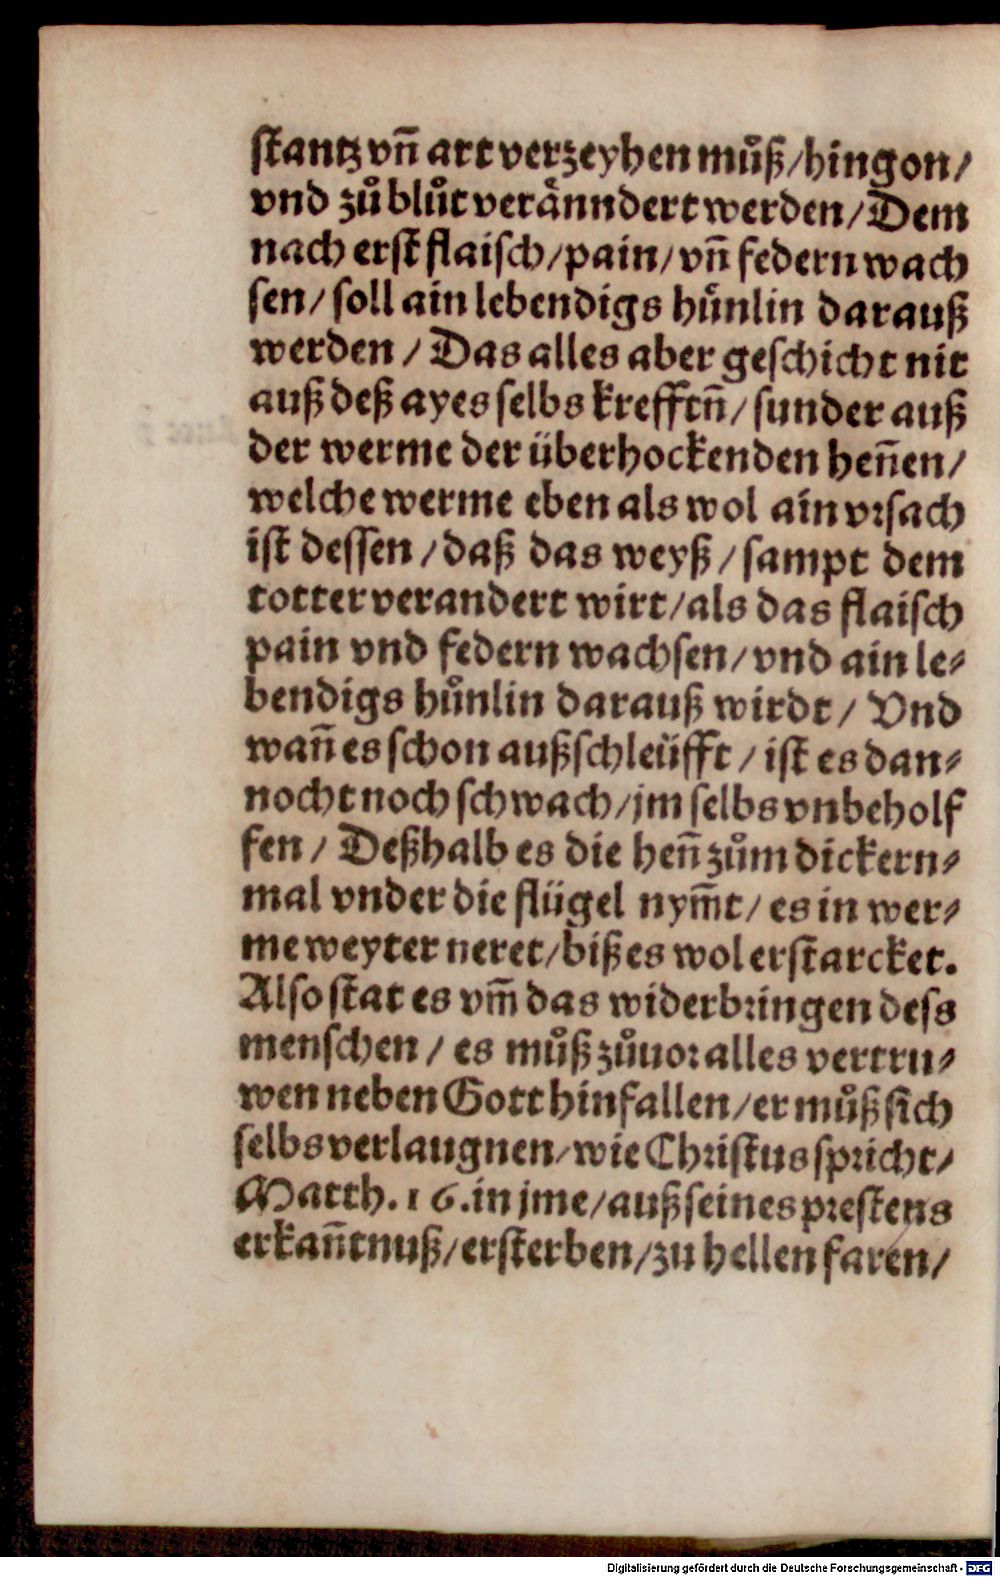 ſtantz vñ art verzeyhen můß/hingon/
vnd zů blůt verånndert werden/Dem
nach erſt flaiſch/pain/vñ federn wach
ſen/ſoll ain lebendigs hůnlin darauß
werden/Das alles aber geſchicht nit
auß deß ayes ſelbs krefftñ/ſunder auß
der werme der überhockenden heñen/
welche werme eben als wol ain vꝛſach
iſt deſſen/daß das weyß/ſampt dem
totter verandert wirt/als das flaiſch
pain vnd federn wachſen/vnd ain le⸗
bendigs hůnlin darauß wirdt/Vnd
wañ es ſchon außſchleüfft/iſt es dan⸗
nocht noch ſchwach/jm ſelbs vnbeholf
fen/Deßhalb es die heñ zům dickern⸗
mal vnder die flügel nym̃t/es in wer⸗
me weyter neret/biß es wol erſtarcket.
Alſo ſtat es vm̃ das widerbꝛingen deſs
menſchen/es můß zůuoꝛ alles vertru⸗
wen neben Gott hinfallen/er můß ſich
ſelbs verlaugnen/wie Chꝛiſtus ſpꝛicht/
Matth.16.in jme/auß ſeines pꝛeſtens
erkañtnuß/erſterben/zu hellen faren/
Digitalisierung gefördert durch die Deutsche Forschungsgemeinschaft - DFG